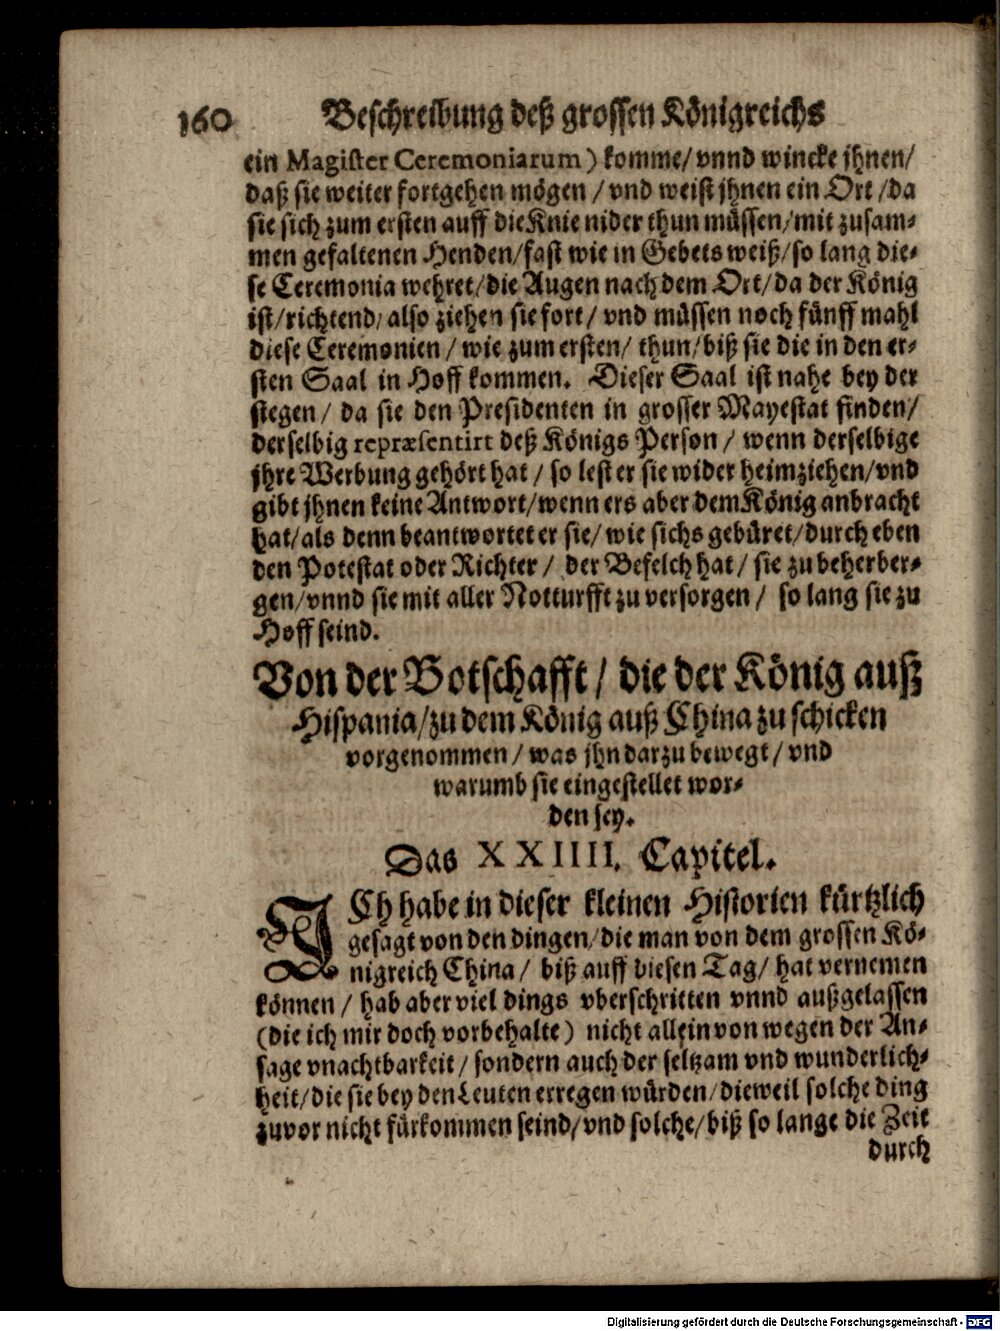 160 Beschreibung deß grossen Königreichs
ein Magister Ceremoniarum) komme/ vnnd wincke jhnen/
daß sie weiter fortgehen mögen / vnd weist jhnen ein Ort /da
sie sich zum ersten auff die Knie nider thun müssen/mit zusam-
men gefaltenen Henden/fast wie in Gebets weiß/so lang die-
se Ceremonia wehret/die Augen nach dem Ort/da der König
ist/richtend/ also ziehen sie fort / vnd müssen noch fünff mahl
diese Ceremonien / wie zum ersten/ thun/biß sie die in den er-
sten Saal in Hoff kommen. Dieser Saal ist nahe bey der
stegen / da sie den Presidenten in grosser Mayestat finden/
derselbig repræsentirt deß Königs Person / wenn derselbige
jhre Werbung gehört hat / so lest er sie wider heimziehen/vnd
gibt jhnen keine Antwort/wenn ers aber dem König anbracht
hat/als denn beantwortet er sie/ wie sichs gebüret/durch eben
den Potestat oder Richter / der Befelch hat / sie zu beherber-
gen/vnnd sie mit aller Notturfft zu versorgen / so lang sie zu
Hoff seind.
Von der Botschafft / die der König auß
Hispania/zu dem König auß China zu schicken
vorgenommen / was jhn darzu bewegt / vnd
warumb sie eingestellet wor-
den sey.
Das XXIIII. Capitel.
ICh habe in dieser kleinen Historien kürtzlich
gesagt von den dingen/die man von dem grossen Kö-
nigreich China / biß auff diesen Tag/ hat vernemen
können / hab aber viel dings vberschritten vnnd außgelassen
(die ich mir doch vorbehalte) nicht allein von wegen der An-
sage vnachtbarkeit / sondern auch der seltzam vnd wunderlich-
heit/die sie bey den Leuten erregen würden/dieweil solche ding
zuvor nicht fürkommen seind/vnd solche/biß so lange die Zeit
durch
Digitalisierung gefördert durch die Deutsche Forschungsgemeinschaft - DFG